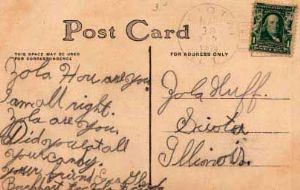 Post Card
THIS SPACE MAY BE USED
FOR CORRESPONDENCE
FOR ADDRESS ONLY
Zola How are you
I am all right.
Zola are you
Did you eat all
your candy.
your friend
Zola Huff.
Scioto
Illinois.